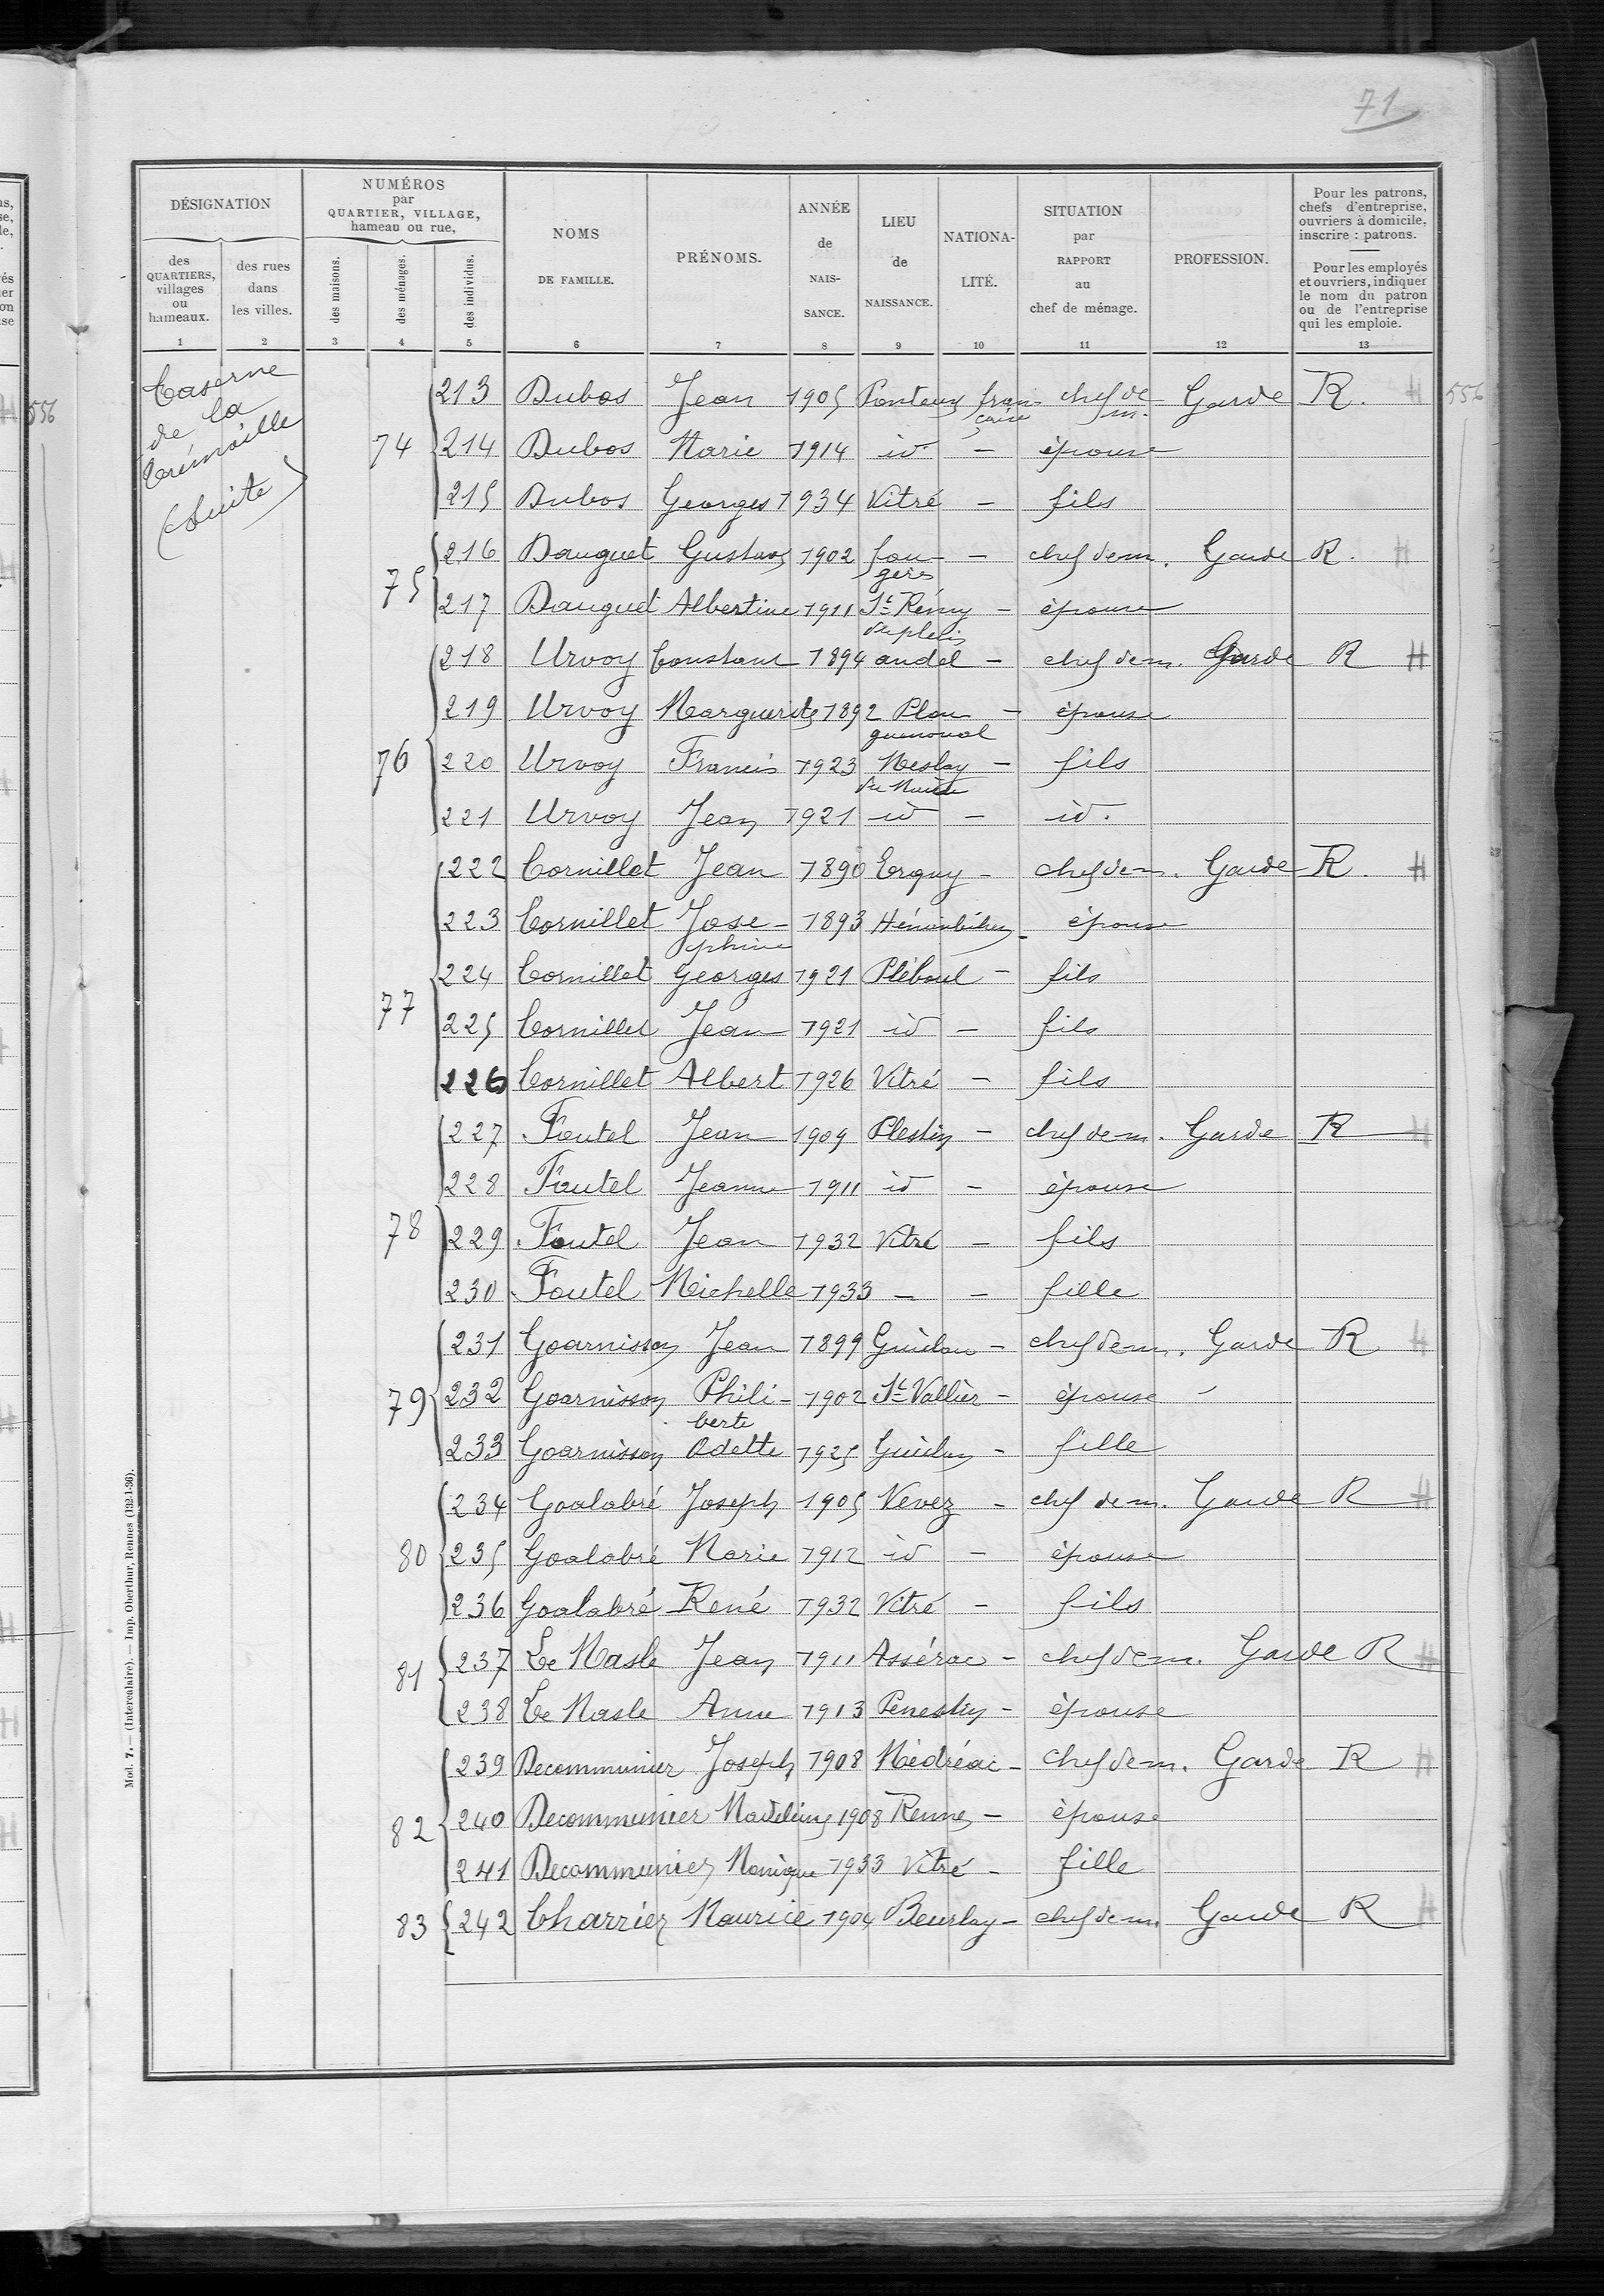 71
DÉSIGNATION
des QUARTIERS, villages ou hameaux.
des rues dans les villes.
NUMÉROS par QUARTIER, VILLAGE, hameau ou rue,
des maisons.
des ménages.
des individus.
NOMS DE FAMILLE.
PRÉNOMS.
ANNÉE de NAIS- SANCE.
LIEU de NAISSANCE.
NATIONA- LITÉ.
SITUATION par RAPPORT au chef de ménage.
PROFESSION.
Pour les patrons, chefs d'entreprise, ouvriers à domicile, inscrire : patrons.
Pour les employés et ouvriers, indiquer le nom du patron ou de l'entreprise qui les emploie.
1 2 3 4 5 6 7 8 9 10 11 12 13
Caserne
de la
Trémoille
(suite)
213 Dubos Jean 1905 fran- chef de Garde R. 556
çaise m.
74 214 Dubos Marie 1914 id - épouse
215 Dubos Georges 1934 Vitré - fils
216 Dauguet Gustave 1902 fou- - chef de m. Garde R.
gères
75 217 Dauguet Albertine 1911 St Rémy - épouse
du plein
218 Urvoy Constant 1894 andel - chef de m. Garde R
219 Urvoy Marguerite 1892 Plou - épouse
guenoual
76 220 Urvoy Francis 1923 Meslay - fils
du Maine
221 Urvoy Jean 1921 id - id.
222 Cornillet Jean 1890 Erquy - chef de m. Garde R.
223 Cornillet Jose- 1893 Hénanbihen - épouse
phine
224 Cornillet Georges 1921 Pléboul - fils
77 225 Cornillet Jean 1921 id - fils
226 Cornillet Albert 1926 Vitré - fils
227 Foutel Jean 1909 Plestin - chef de m. Garde R
228 Foutel Jeanne 1911 id - épouse
78 229 Foutel Jean 1932 Vitré - fils
230 Foutel Michelle 1933 - - fille
231 Goarnisson Jean 1899 - chef de m. Garde R
79 232 Goarnisson Phili- 1902 St Vallier - épouse
berte
233 Goarnisson Odette 1925 - fille
234 Goalabré Joseph 1905 Nevez - chef de m. Garde R
80 235 Goalabré Marie 1912 id - épouse
236 Goalabré René 1932 Vitré - fils
81 237 Le Masle Jean 1911 Assérac - chef de m. Garde R
238 Le Masle Anne 1913 Penestin - épouse
239 Decommunier Joseph 1908 Médréac - chef de m. Garde R
82 240 Decommunier Madeleine 1908 Rennes - épouse
241 Decommunier Monique 1933 Vitré - fille
83 242 Charrier Maurice 1904 Beurlay - chef de m. Garde R
Mod. 7. — (Intercalaire). — Imp. Oberthur, Rennes (132-1-36).
556